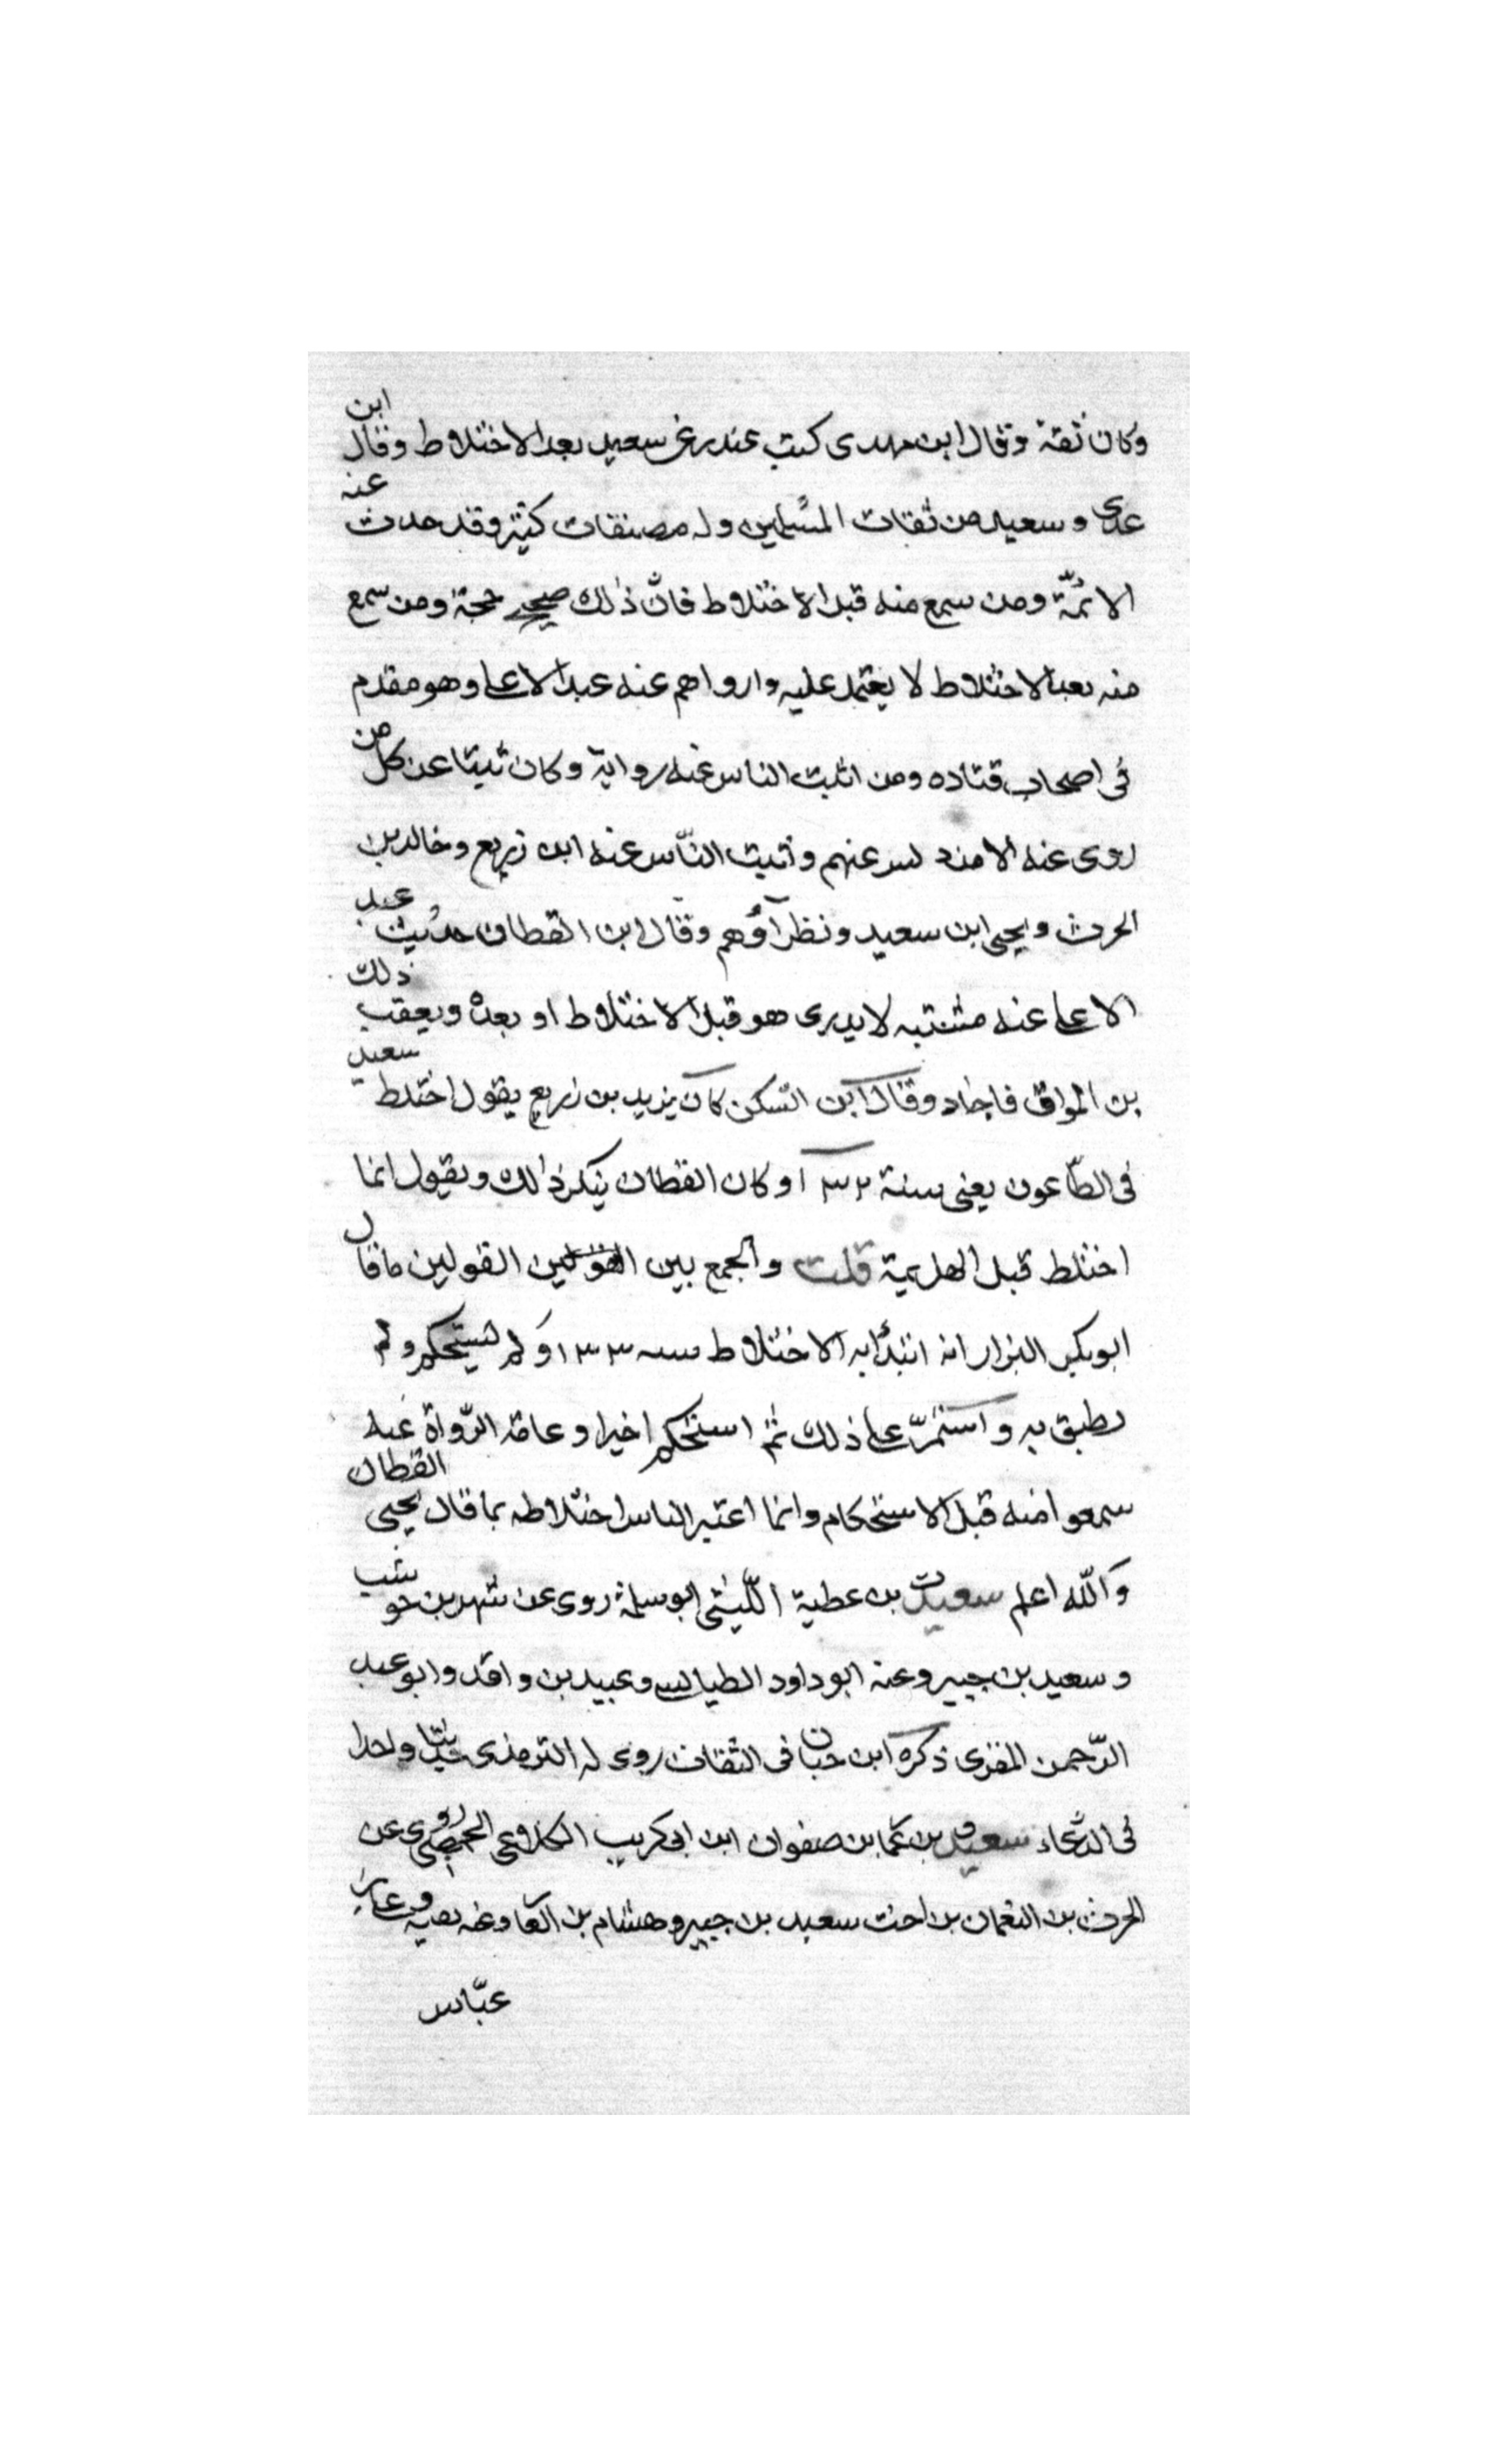 وكان ثقة وقال ابن مهدى كتب غندر عن سعيد بعد الاختلاط وقال ابن
عدى وسعيد من ثقات المسلمين وله مصنفات كثيرة وقد حدث عنه
الائمّة ومن سمع منه قبل الاختلاط فانّ ذلك صحيح حجة ومن سمع
منه بعد الاختلاط لا يعتمد عليه وارواهم عنه عبد الاعلى وهو مقدم
فى اصحاب قتاده ومن اثبت الناس عنه رواية وكان ثبتا عن كل من
روى عنه الا من دلس عنهم واثبت النّاس عنه ابن زريع وخالد بن
الحرث ويحيى ابن سعيد ونظرآؤهم وقال ابن القطان حديث عبد
الاعلى عنه مشتبه لا يدرى هو قبل الاختلاط او بعده ويعقب ذلك
بن المواق فاجاد وقال ابن السّكن كان يزيد بن زريع يقول اختلط سعيد
فى الطّاعون يعنى سنة ١٣٢ وكان القطان ينكر ذلك ويقول انما
اختلط قبل الهزيمة قلت والجمع بين القولين ما قال
ابو بكر البزار انه ابتدأ به الاختلاط سنه ١٣٣ ولم يستحكم ولم
يطبق به واستمرّ على ذلك ثم استحكم اخيرا وعامة الرّواة عنه
سمعوا منه قبل الاستحكام وانما اعتبر الناس اختلاطه بما قال يحيى القطان
والله اعلم سعيد بن عطية اللّيثى ابو سلمة روى عن شهر بن حوشب
وسعيد بن جبير وعنه ابو داود الطيالسى وعبيد بن واقد وابو عبد
الرّحمن المقرى ذكره ابن حبان فى الثقات روى له الترمذى حديثا واحدا
فى الدّعاء سعيد بن عمّا بن صفوان ابن ابى كريب الكلاعى الحمصى روى عن
الحرث بن النعمان بن اخت سعيد بن جبير وهشام بن الغا وعنه بقية وعلى بن
عبّاس